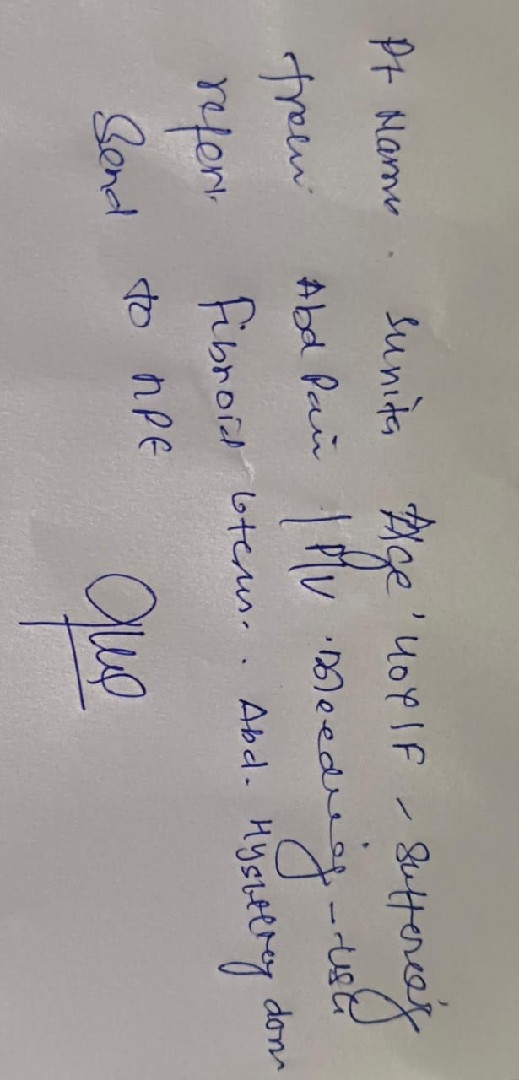 Pt Name. Sunita Age 40Y/F - Suffering
from Abd Pain / P/V Bleeding - USG
refer. fibroid uterus. Abd. Hysterecy done
Send to HPE